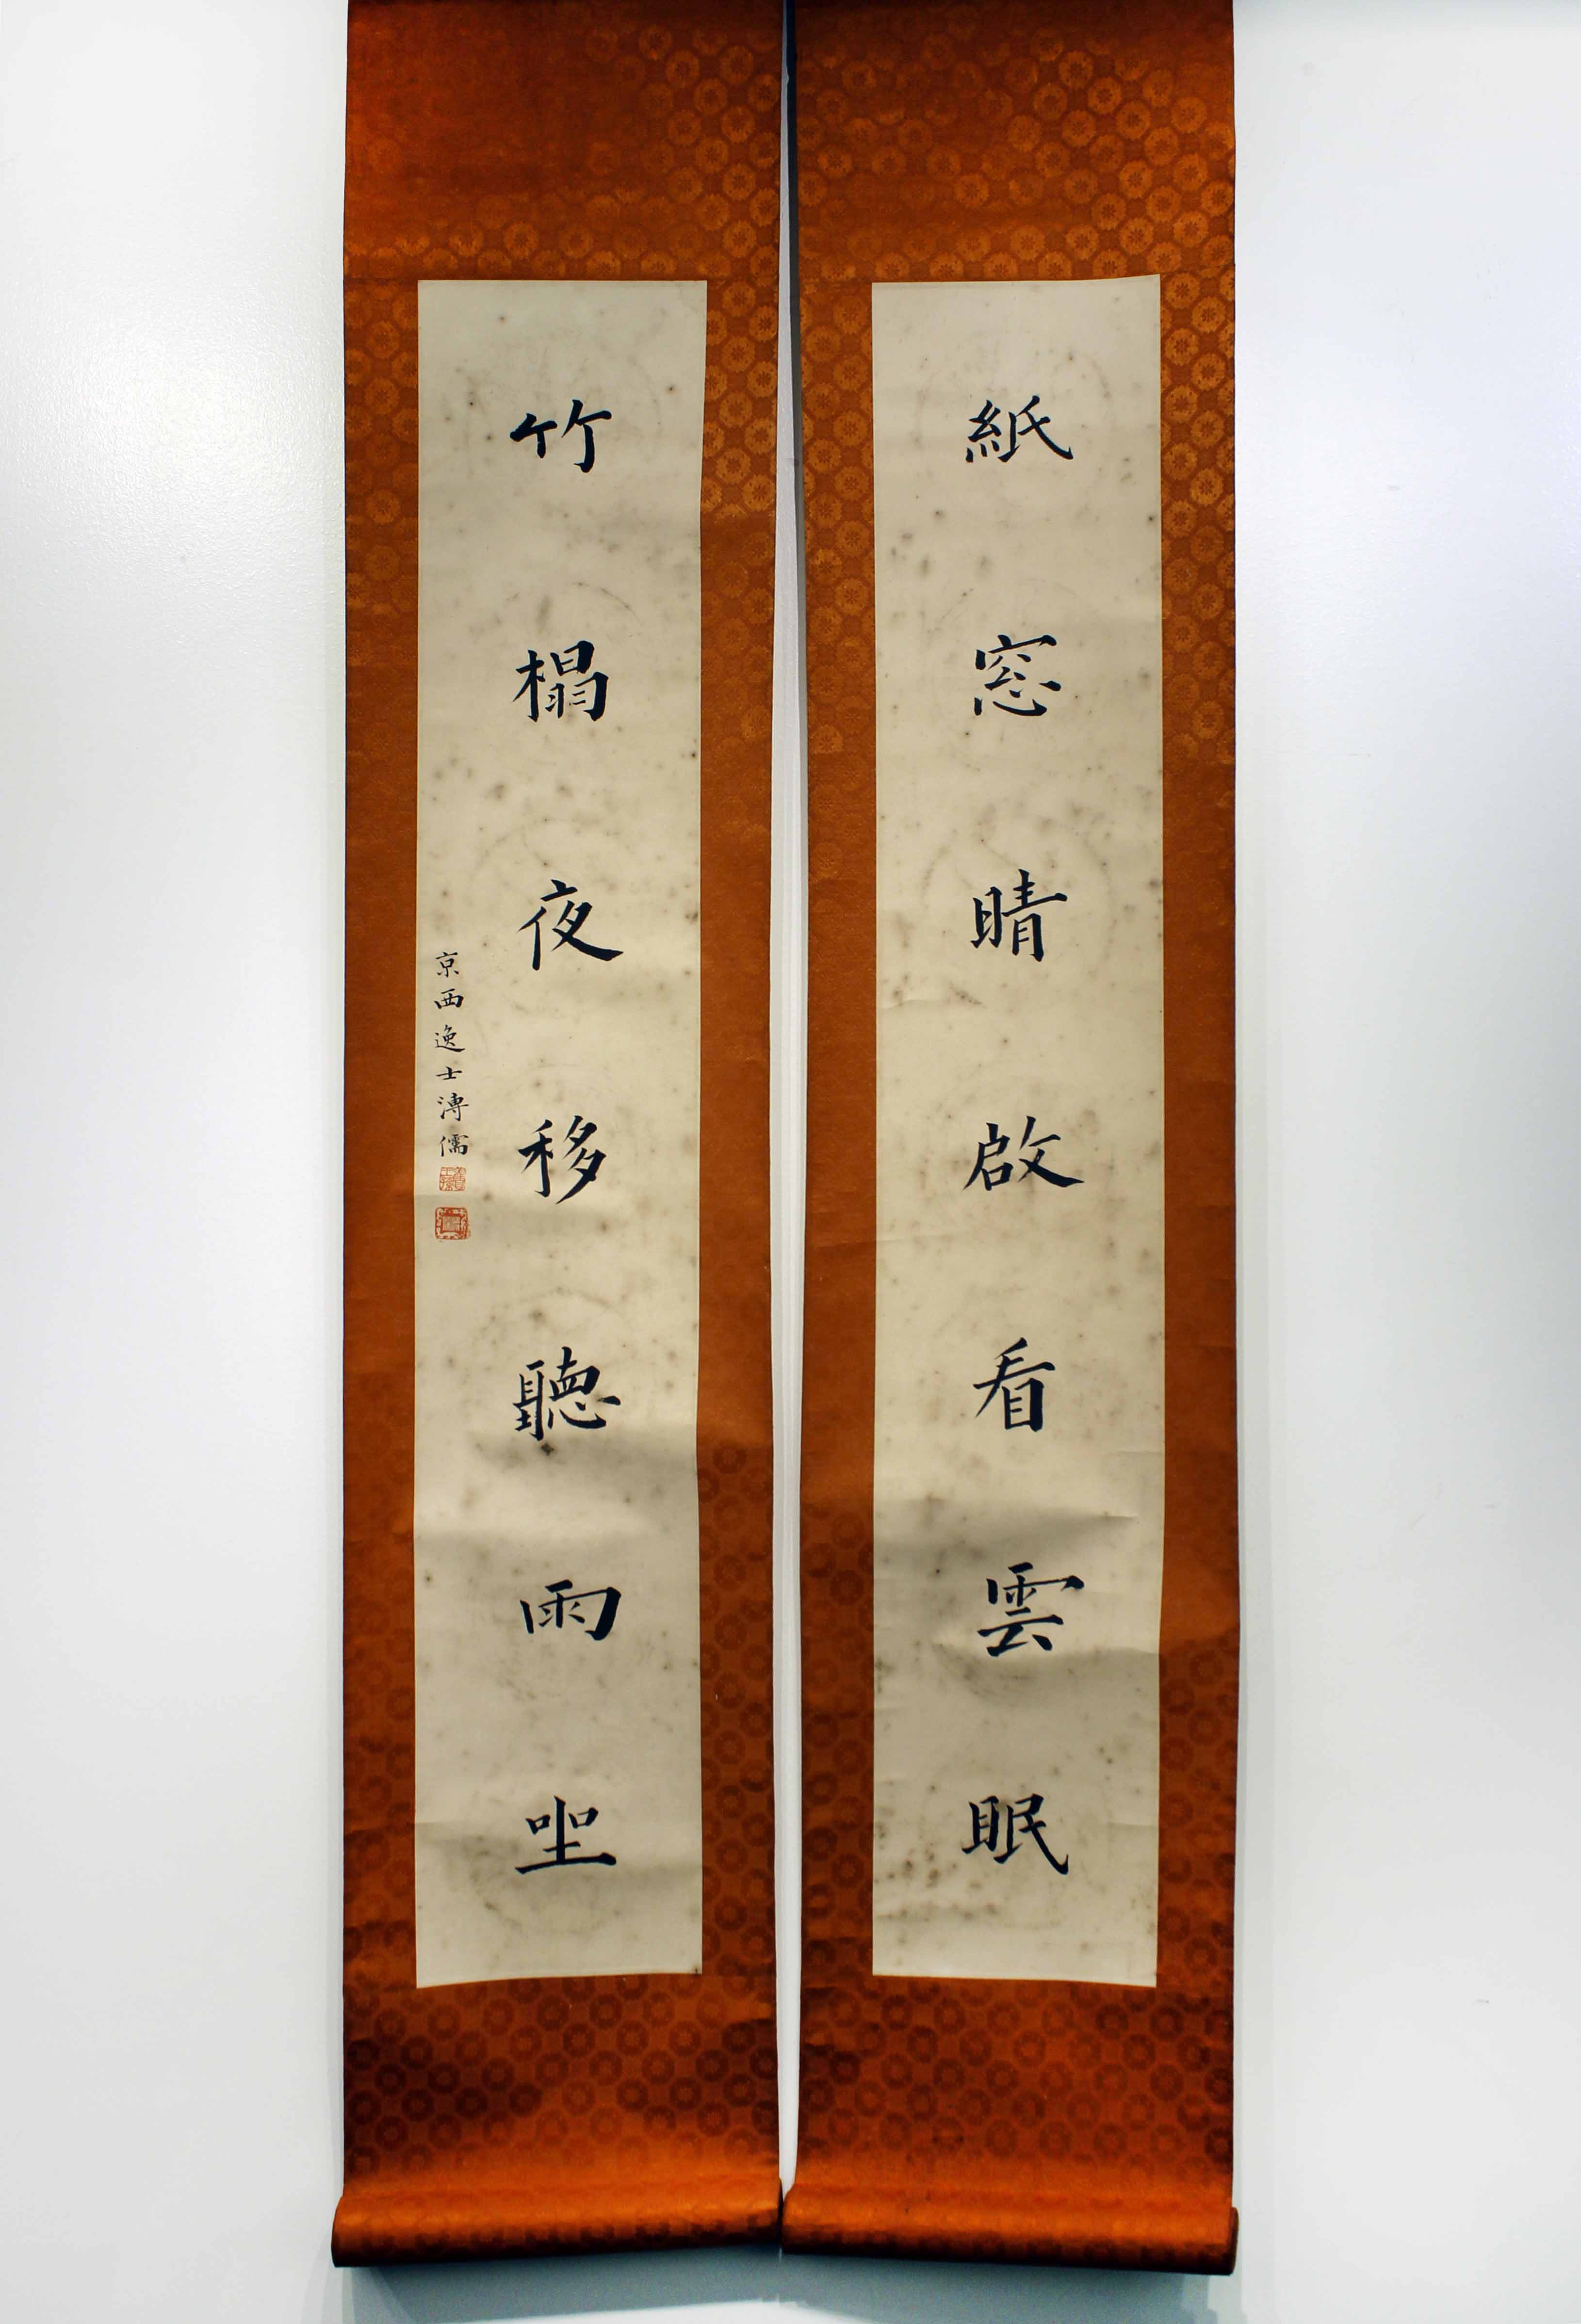 紙窓晴啟看雲眠
竹榻夜移聽雨坐
京西逸士溥儒